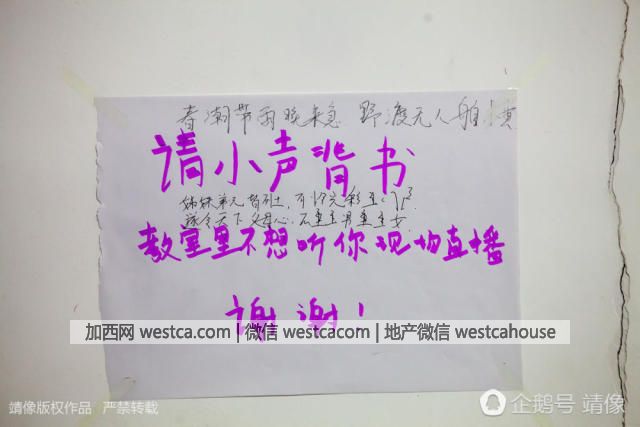 春潮带雨晚来急 野渡无人
请小声背书
姊妹弟兄皆列土，可怜光彩生门户
遂令天下父母心：不重生男重生女
教室里不想听你现场直播
谢谢！
加西网 westca.com | 微信 westcacom | 地产微信 westcahouse
靖像版权作品 严禁转载
企鹅号 靖像